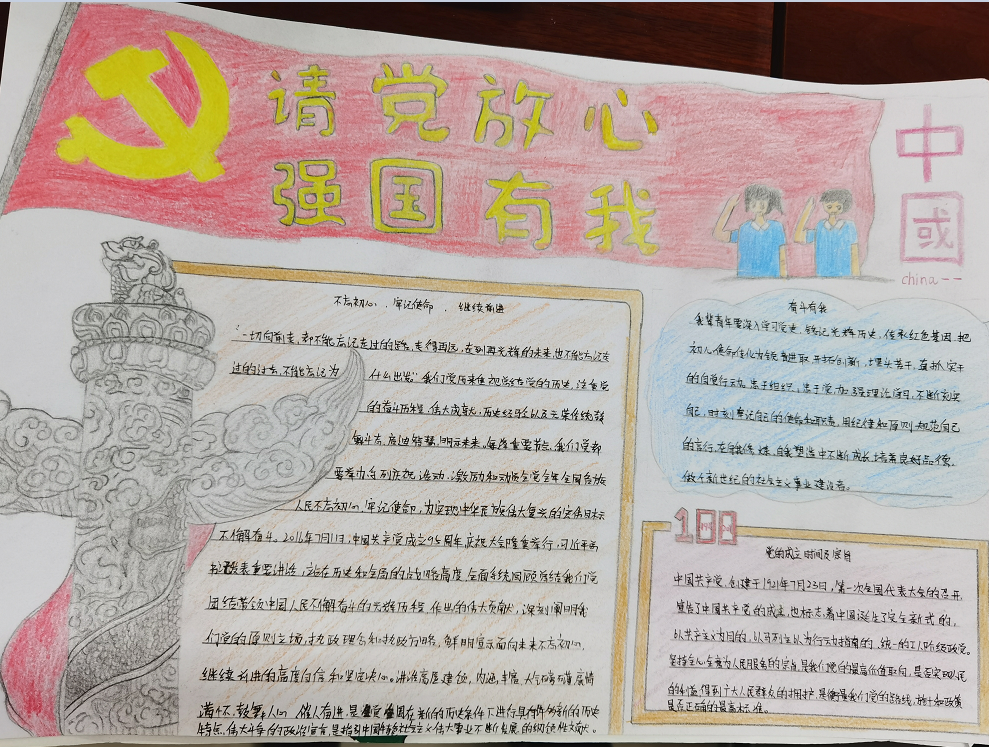 请党放心
强国有我
中
國
china--
不忘初心、牢记使命、继续前进
"一切向前走,都不能忘记走过的路;走得再远,走到再光辉的未来,也不能忘记走
过的过去,不能忘记为什么出发"我们党历来重视总结党的历史,注重党
的奋斗历程、伟大成就、历史经验以及元荣传统
奋斗志、启迪智慧、明示未来。每逢重要节点,我们党都
要举办系列庆祝活动,激励和动员全党全军全国各族
人民不忘初心,牢记使命,为实现中华民族伟大复兴的宏伟目标
不懈奋斗。2016年7月1日,中国共产党成立95周年庆祝大会隆重举行,习近平总
书记发表重要讲话,站在历史和全局的战略高度,全面系统回顾总结我们党
团结带领中国人民不懈奋斗的光辉历程,作出的伟大贡献,深刻阐明我
们党的原则立场,执政理念和执政方略,鲜明显示面向未来不忘初心,
继续前进的高度自信和坚定决心。讲话高屋建瓴,内涵丰富,大气磅礴,
情怀,鼓舞人心,催人奋进,是在新的历史条件下进行具有许多新的历史
特点,伟大斗争的政治宣言,是指引中国特色社会主义伟大事业不断发展的纲领性文献。
奋斗有我
我辈青年要深入学习党史,铭记光辉历史,传承红色基因,把
初心使命转化为锐意进取,开拓创新,埋头苦干,真抓实干
的自觉行动,忠于组织,忠于党,加强理论学习,不断充实
自己,时刻牢记自己的使命和职责,用纪律和原则规范自己
的言行,在自我传炼,自我塑造中不断成长,培养良好品德,
做个新世纪的社会主义事业建设者。
100
党的成立时间及宗旨
中国共产党,创建于1921年7月23日,第一次全国代表大会的召开
宣告了中国共产党的成立,也标志着中国诞生了完全新式的,
以共产主义为目的,以马列主义为行动指南的,统一的工人阶级政党。
坚持全心全意为人民服务的宗旨,是我们党的最高价值取向,是否实现人民
的利益,得到广大人民群众的拥护,是衡量我们党的路线,方针和政策
是否正确的最高标准。